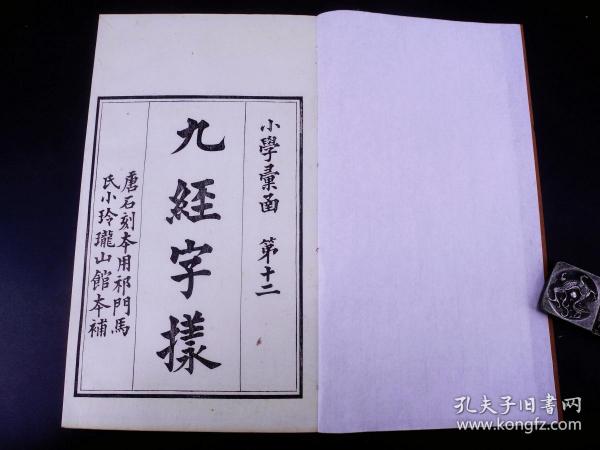 小學彙函 第十二
九經字㨾
唐石刻本用祁門馬
氏小玲瓏山館本補
孔夫子旧书网
www.kongfz.com